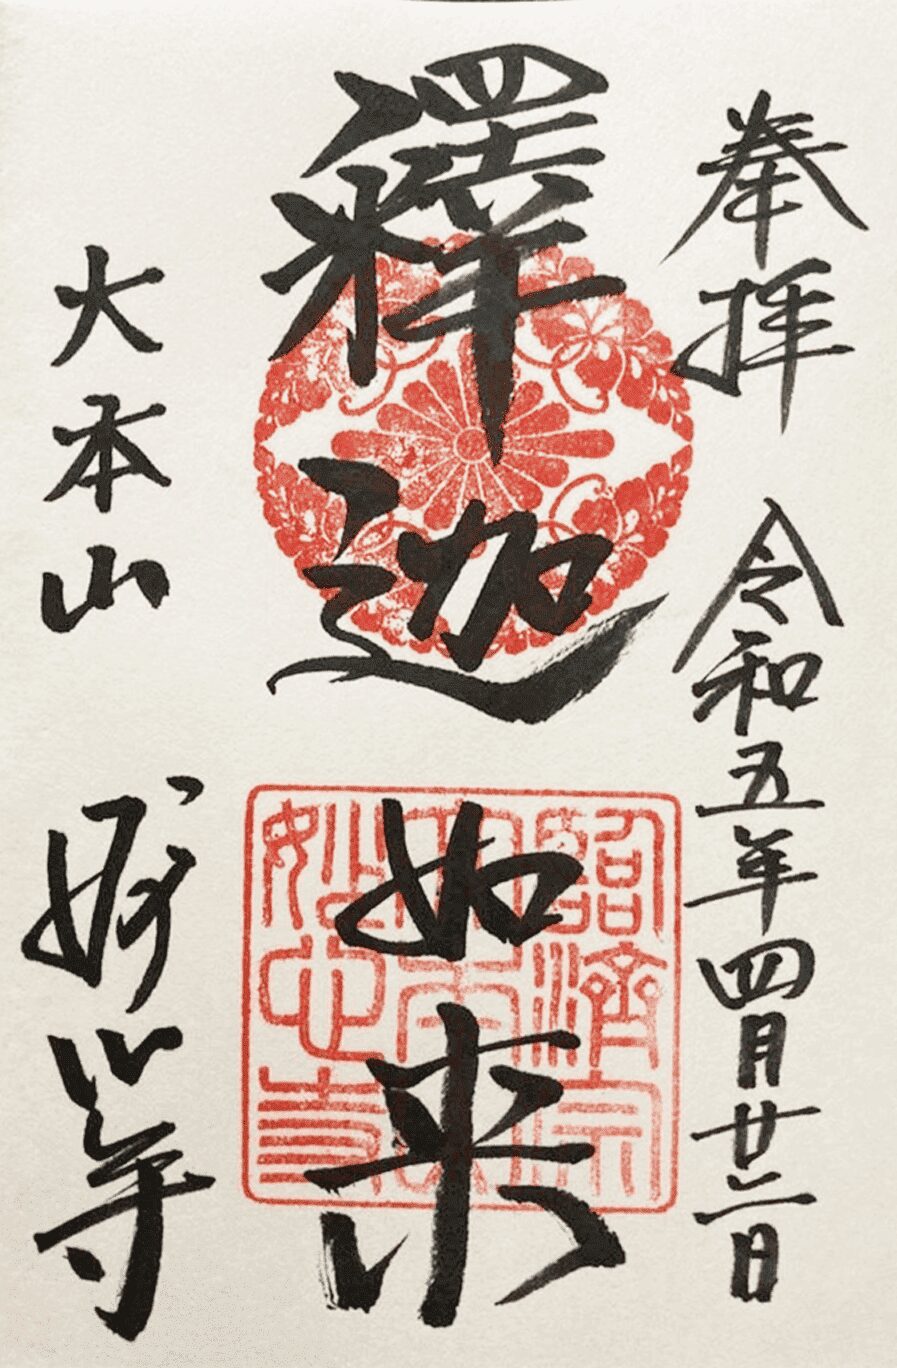 奉拝 令和五年四月廿二日
釋迦如来
大本山 妙心寺
臨濟宗
妙心寺